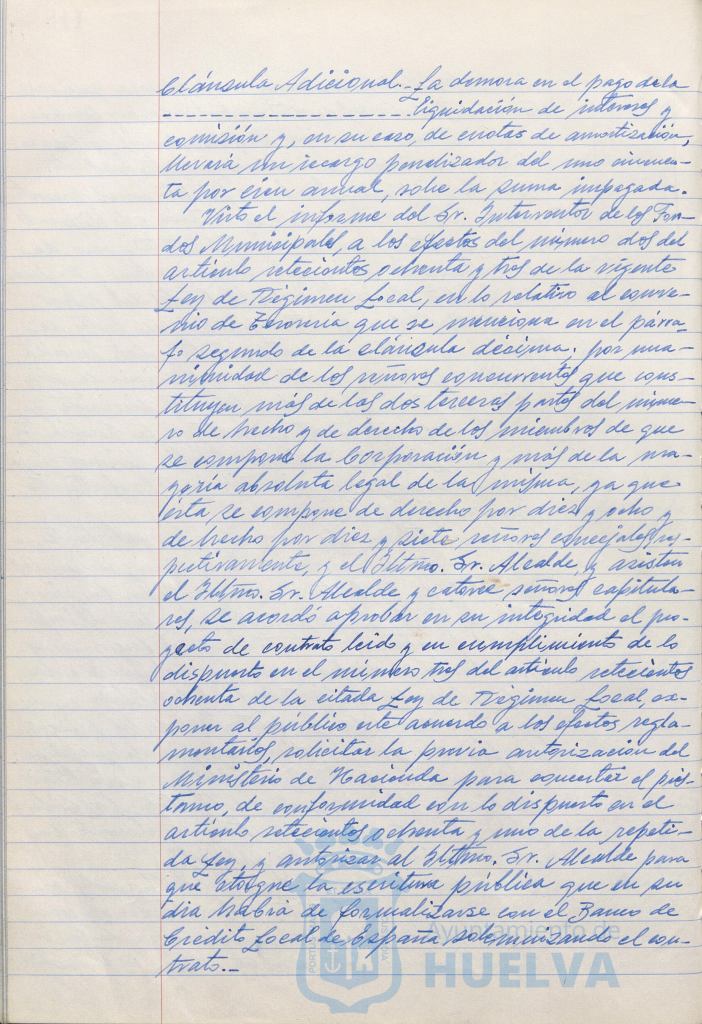 Cláusula Adicional.- La demora en el pago de la
------------------ liquidación de intereses y
comisión y, en su caso, de cuotas de amortización,
llevará un recargo penalizador del uno cincuen-
ta por cien anual, sobre la suma impagada.
Visto el informe del Sr. Interventor de los Fon-
dos Municipales, a los efectos del número dos del
artículo setecientos ochenta y tres de la vigente
Ley de Régimen Local, en lo relativo al conve-
nio de Tesorería que se menciona en el párra-
fo segundo de la cláusula décima; por una-
nimidad de los señores concurrentes que cons-
tituyen más de las dos terceras partes del núme-
ro de hecho y de derecho de los miembros de que
se compone la Corporación y más de la ma-
yoría absoluta legal de la misma, ya que
ésta se compone de derecho por diez y ocho y
de hecho por diez y siete señores concejales res-
pectivamente, y el Iltmo. Sr. Alcalde, y asisten
el Iltmo. Sr. Alcalde y catorce señores capitula-
res, se acordó aprobar en su integridad el pro-
yecto de contrato leído y en cumplimiento de lo
dispuesto en el número tres del artículo setecientos
ochenta de la citada Ley de Régimen Local, ex-
poner al público este acuerdo a los efectos regla-
mentarios, solicitar la previa autorización del
Ministerio de Hacienda para concertar el prés-
tamo, de conformidad con lo dispuesto en el
artículo setecientos ochenta y uno de la repeti-
da Ley, y autorizar al Iltmo. Sr. Alcalde para
que otorgue la escritura pública que en su
día habrá de formalizarse con el Banco de
Crédito Local de España solemnizando el con-
trato.-
Ayuntamiento de
HUELVA